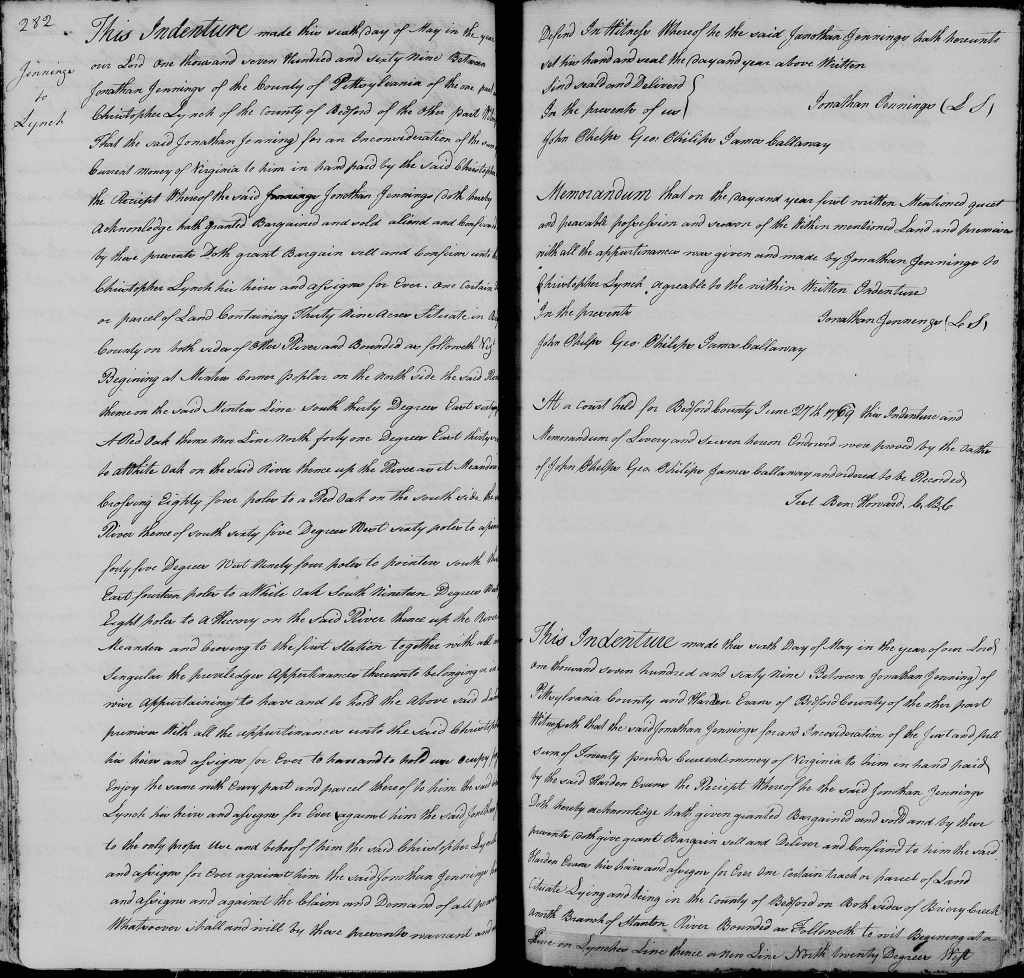 282
Jennings
to
Lynch
This Indenture made this sixth Day of May in the year
our Lord One thousand seven Hundred and sixty Nine Between
Jonathan Jennings of the County of Pittsylvania of the one part
Christopher Lynch of the County of Bedford of the Other part
That the said Jonathan Jennings for an Inconsideration of the sum
Current money of Virginia to him in hand paid by the said Christopher
the Reciept Whereof the said Jennings Jonathan Jennings doth hereby
Acknowledge hath granted Bargained and sold aliend and Confirmd
by these presents Doth grant Bargain sell and Confirm unto
Christopher Lynch his heirs and assigns for Ever. One Certain
or parcel of Land Containing Thirty Nine Acres Situate in
County on both sides of Otter River and Bounded as followeth
Begining at Minters Corner poplar on the North side the said
thence on the said Minters Line South thirty Degrees East
A Red Oak thence New Line North forty one Degrees East thirty
to a White Oak on the said River thence up the River as it Meanders
Crossing Eighty four poles to a Red Oak on the south side
River thence of south sixty five Degrees West sixty poles to a
forty five Degrees West Ninety four poles to pointers south
East fourteen poles to a White Oak South Nineteen Degrees
Eight poles to a Hiccory on the said River thence up the River
Meanders and Crossing to the first Station together with all
Singular the previledges Appertinances thereunto belonging or
wise Appurtaining to have and to hold the above said
premises With all the appurtinances unto the said Christopher
his heirs and assigns for Ever to have and to hold use Occupy
Enjoy the same with Every part and parcel thereof to him the said
Lynch his heirs and assigns for Ever against him the said Jonathan
to the only proper Use and behoof of him the said Christopher Lynch
and assigns for Ever against him the said Jonathan Jennings
and assigns and against the Claim and Demand of all
Whatsoever shall and will by these presents warrant and
Defend In Witness Whereof he the said Jonathan Jennings hath hereunto
set his hand and seal the Day and year above Written
Sind seald and Deliverd
In the presents of us
Jonathan Jennings (L S)
John Phelps Geo. Philips James Callaway
Memorandum that on the Day and year first written Mentioned quiet
and peacable possession and seison of the Within mentioned Land and premises
with all the appurtinances was given and made by Jonathan Jennings to
Christopher Lynch agreable to the within Written Indenture
In the presents
Jonathan Jennings (L S)
John Phelps Geo Philips James Callaway
At a Court held for Bedford County June 27th 1769 this Indenture and
Memorandum of Levery and Seisen hereon Endorced were proved by the Oaths
of John Phelps Geo. Philips James Callaway and ordered to be Recorded
Test Ben: Howard. C. B. C
This Indenture made this sixth Day of May in the year of our Lord
one thousand seven hundred and sixty Nine Between Jonathan Jennings of
Pittsylvania County and Harden Evans of Bedford County of the other part
Witnesseth that the said Jonathan Jennings for and Inconsideration of the Just and full
sum of Twenty pounds Current money of Virginia to him in hand paid
by the said Harden Evans the Reciept Whereof he the said Jonathan Jennings
Doth hereby acknowledge hath given granted Bargained and sold and by these
presents doth give grant Bargain sell and Deliver and Confirmd to him the said
Harden Evans his heirs and assigns for Ever One Certain track or parcel of Land
Cituate Lying and being in the County of Bedford on Both sides of Briery Creek
a north Branch of Stanton River Bounded as Followeth to wit Begining at a
Pine on Lynches Line thence a new Line North twenty Degrees West